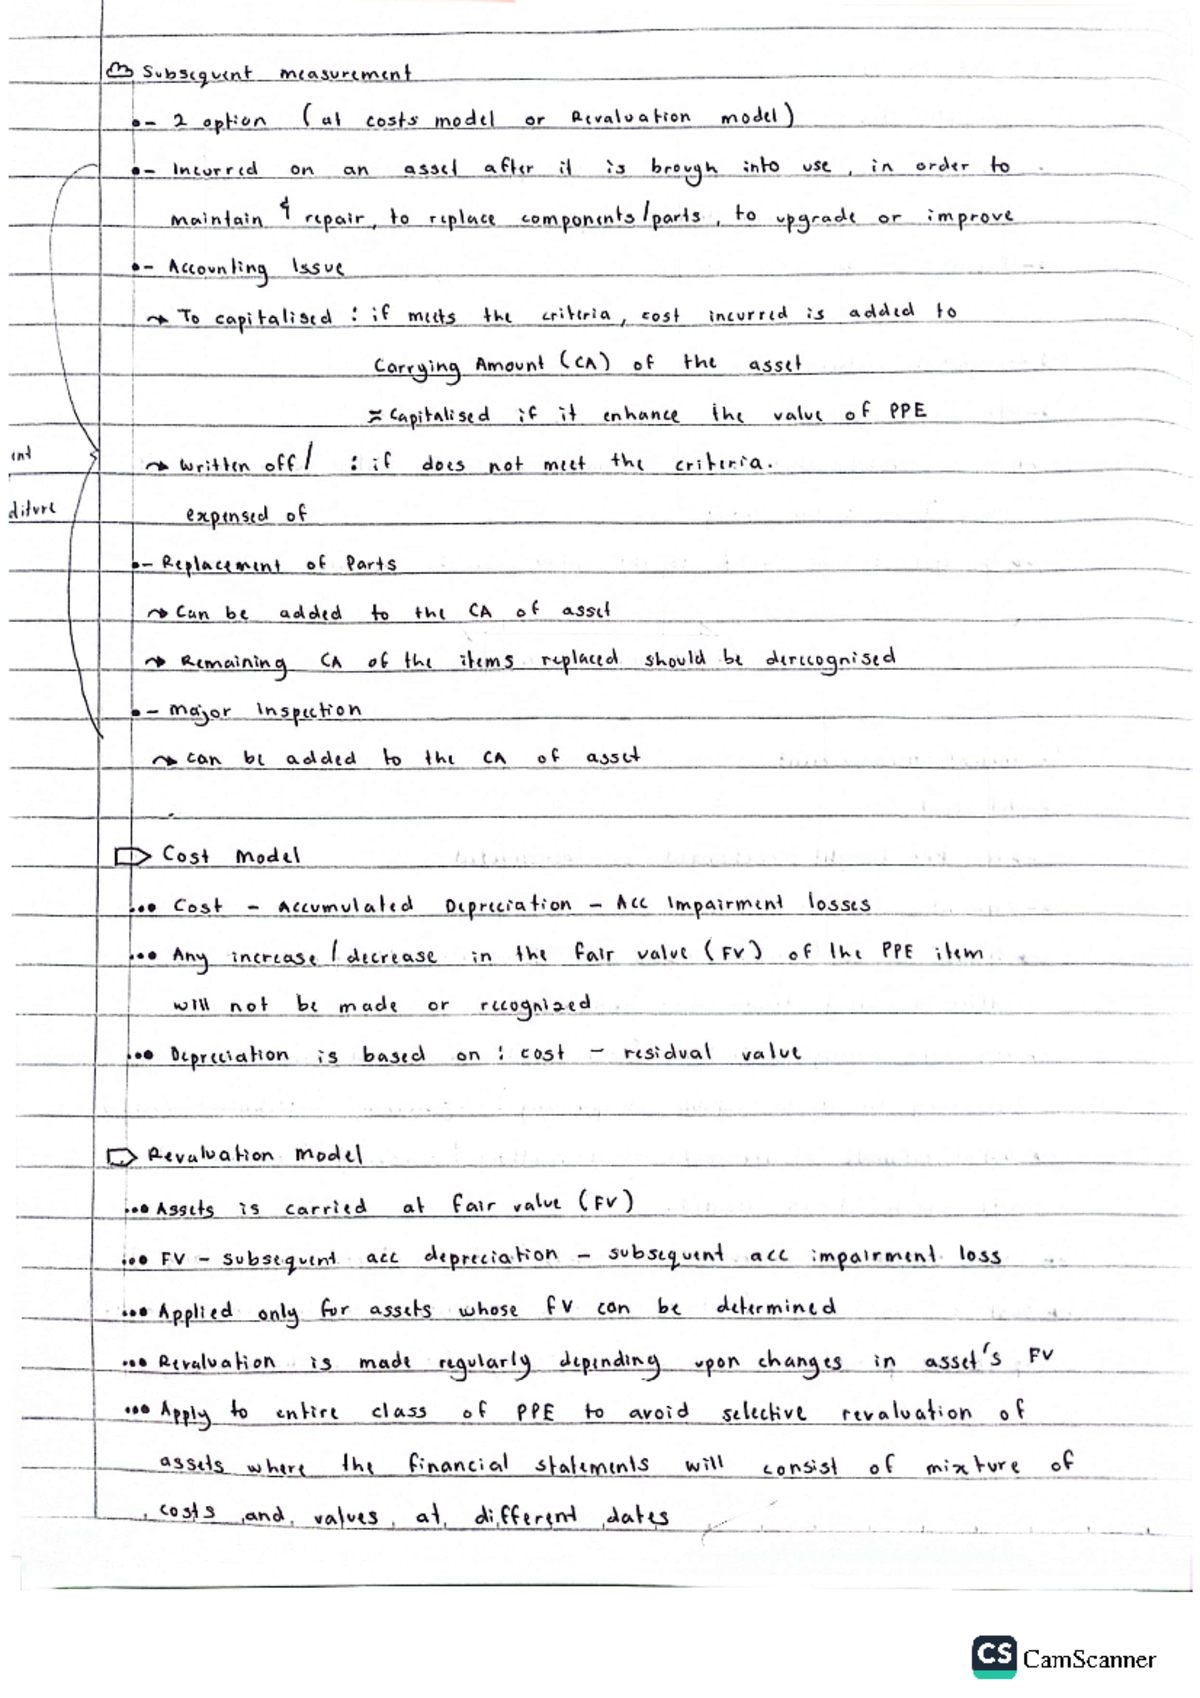 Subsequent measurement
- 2 option (at costs model or Revaluation model)
- Incurred on an asset after it is brough into use, in order to
maintain & repair, to replace components/parts, to upgrade or improve
- Accounting Issue
→ To capitalised : if meets the criteria, cost incurred is added to
Carrying Amount (CA) of the asset
≈ Capitalised if it enhance the value of PPE
→ Written off/ : if does not meet the criteria.
expensed of
- Replacement of Parts
→ Can be added to the CA of asset
→ Remaining CA of the items replaced should be derecognised
- major Inspection
→ can be added to the CA of asset
Cost Model
... Cost - Accumulated Depreciation - Acc Impairment losses
... Any increase/decrease in the fair value (FV) of the PPE item
will not be made or recognized
... Depreciation is based on : cost - residual value
Revaluation model
... Assets is carried at fair value (FV)
... FV - subsequent acc depreciation - subsequent acc impairment loss
... Applied only for assets whose FV can be determined
... Revaluation is made regularly depending upon changes in asset's FV
... Apply to entire class of PPE to avoid selective revaluation of
assets where the financial statements will consist of mixture of
costs and values at different dates
CS CamScanner